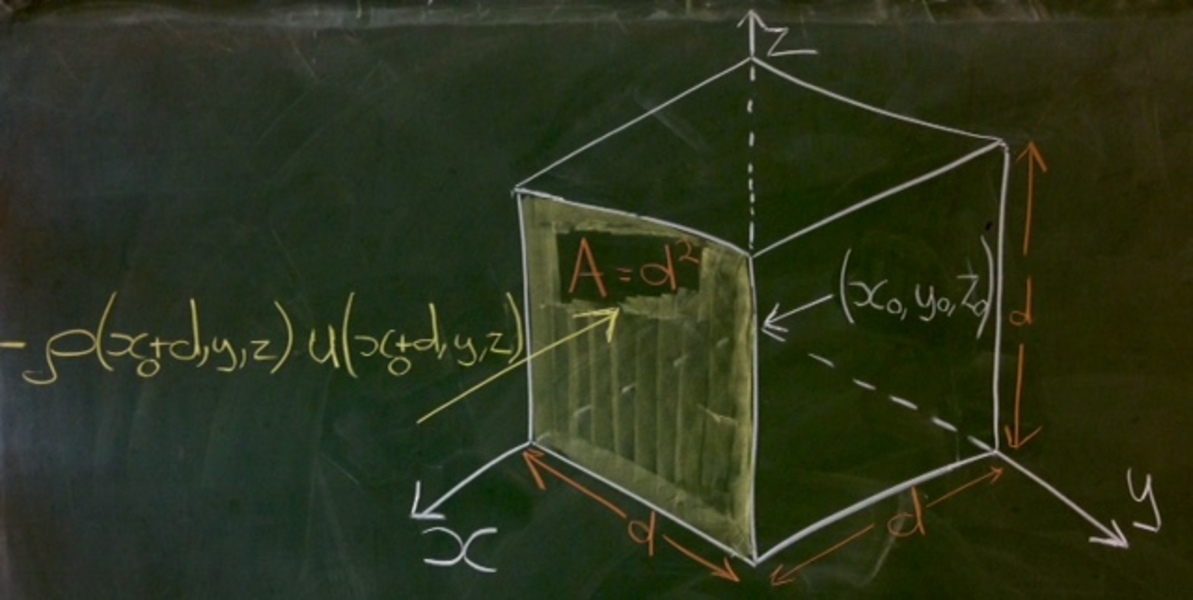 z
A = d²
(x₀, y₀, z₀)
d
-ρ(x₀+d,y,z) u(x₀+d,y,z)
y
d
d
x